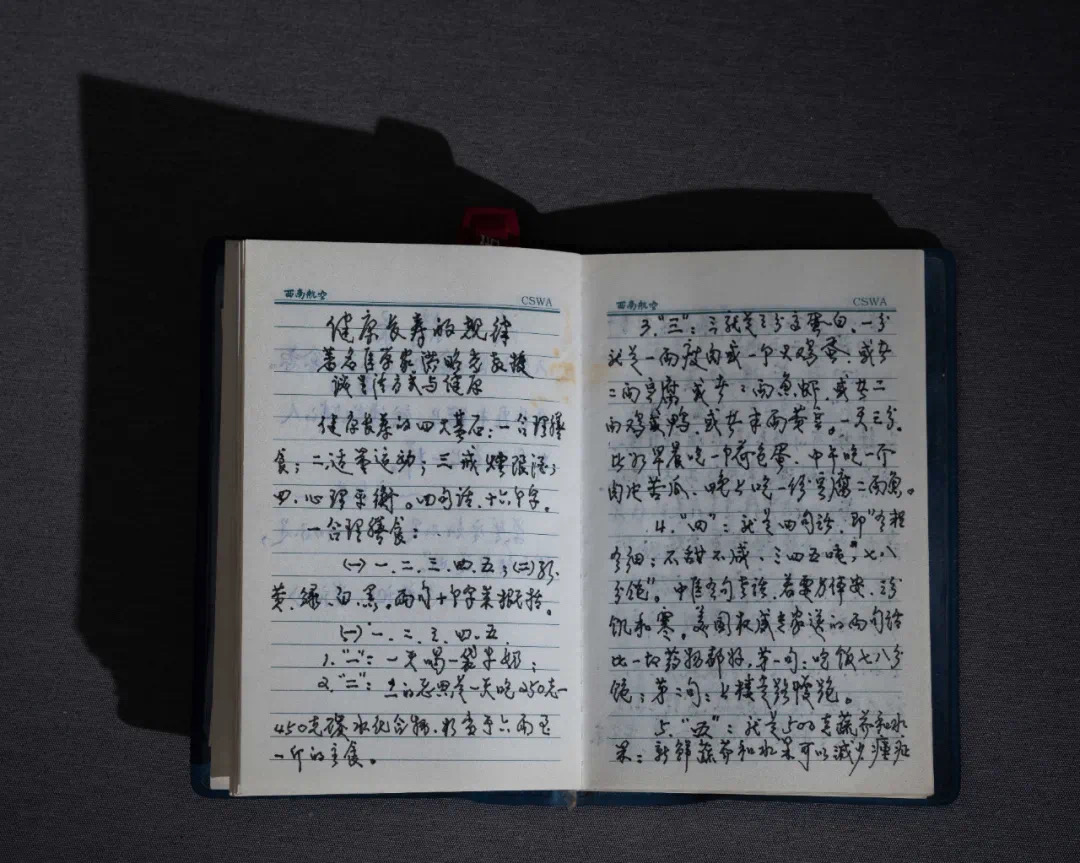 西南航空 CSWA
健康长寿的规律
著名医学家洪昭光教授
谈生活方式与健康
健康长寿的四大基石：一合理膳
食；二适量运动；三戒烟限酒；
四、心理平衡。四句话，十六个字。
一合理膳食：
㈠一、二、三、四、五；㈡红、
黄、绿、白、黑。两句十个字来概括。
㈠一、二、三、四、五、
1."一"：一天喝一袋牛奶；
2."二"：二的意思是一天吃250克—
450克碳水化合物，相当于六两至
一斤的主食。
西南航空 CSWA
3."三"：三就是三分高蛋白，一分
就是一两瘦肉或一个大鸡蛋，或者
二两豆腐，或者二两鱼虾，或者二
两鸡或鸭，或者半两黄豆。一天三分。
比如早晨吃一个荷包蛋，中午吃一个
肉片苦瓜，晚上吃一份豆腐二两鱼。
4."四"：就是四句话，即"有粗
有细；不甜不咸，三四五顿，七八
分饱"。中医有句老话，若要身体安，三分
饥和寒。美国权威专家送的两句话
比一切药物都好，第一句：吃饭七八分
饱；第二句：上楼走路慢跑。
5."五"：就是500克蔬菜和水
果：新鲜蔬菜和水果可以减少癌症